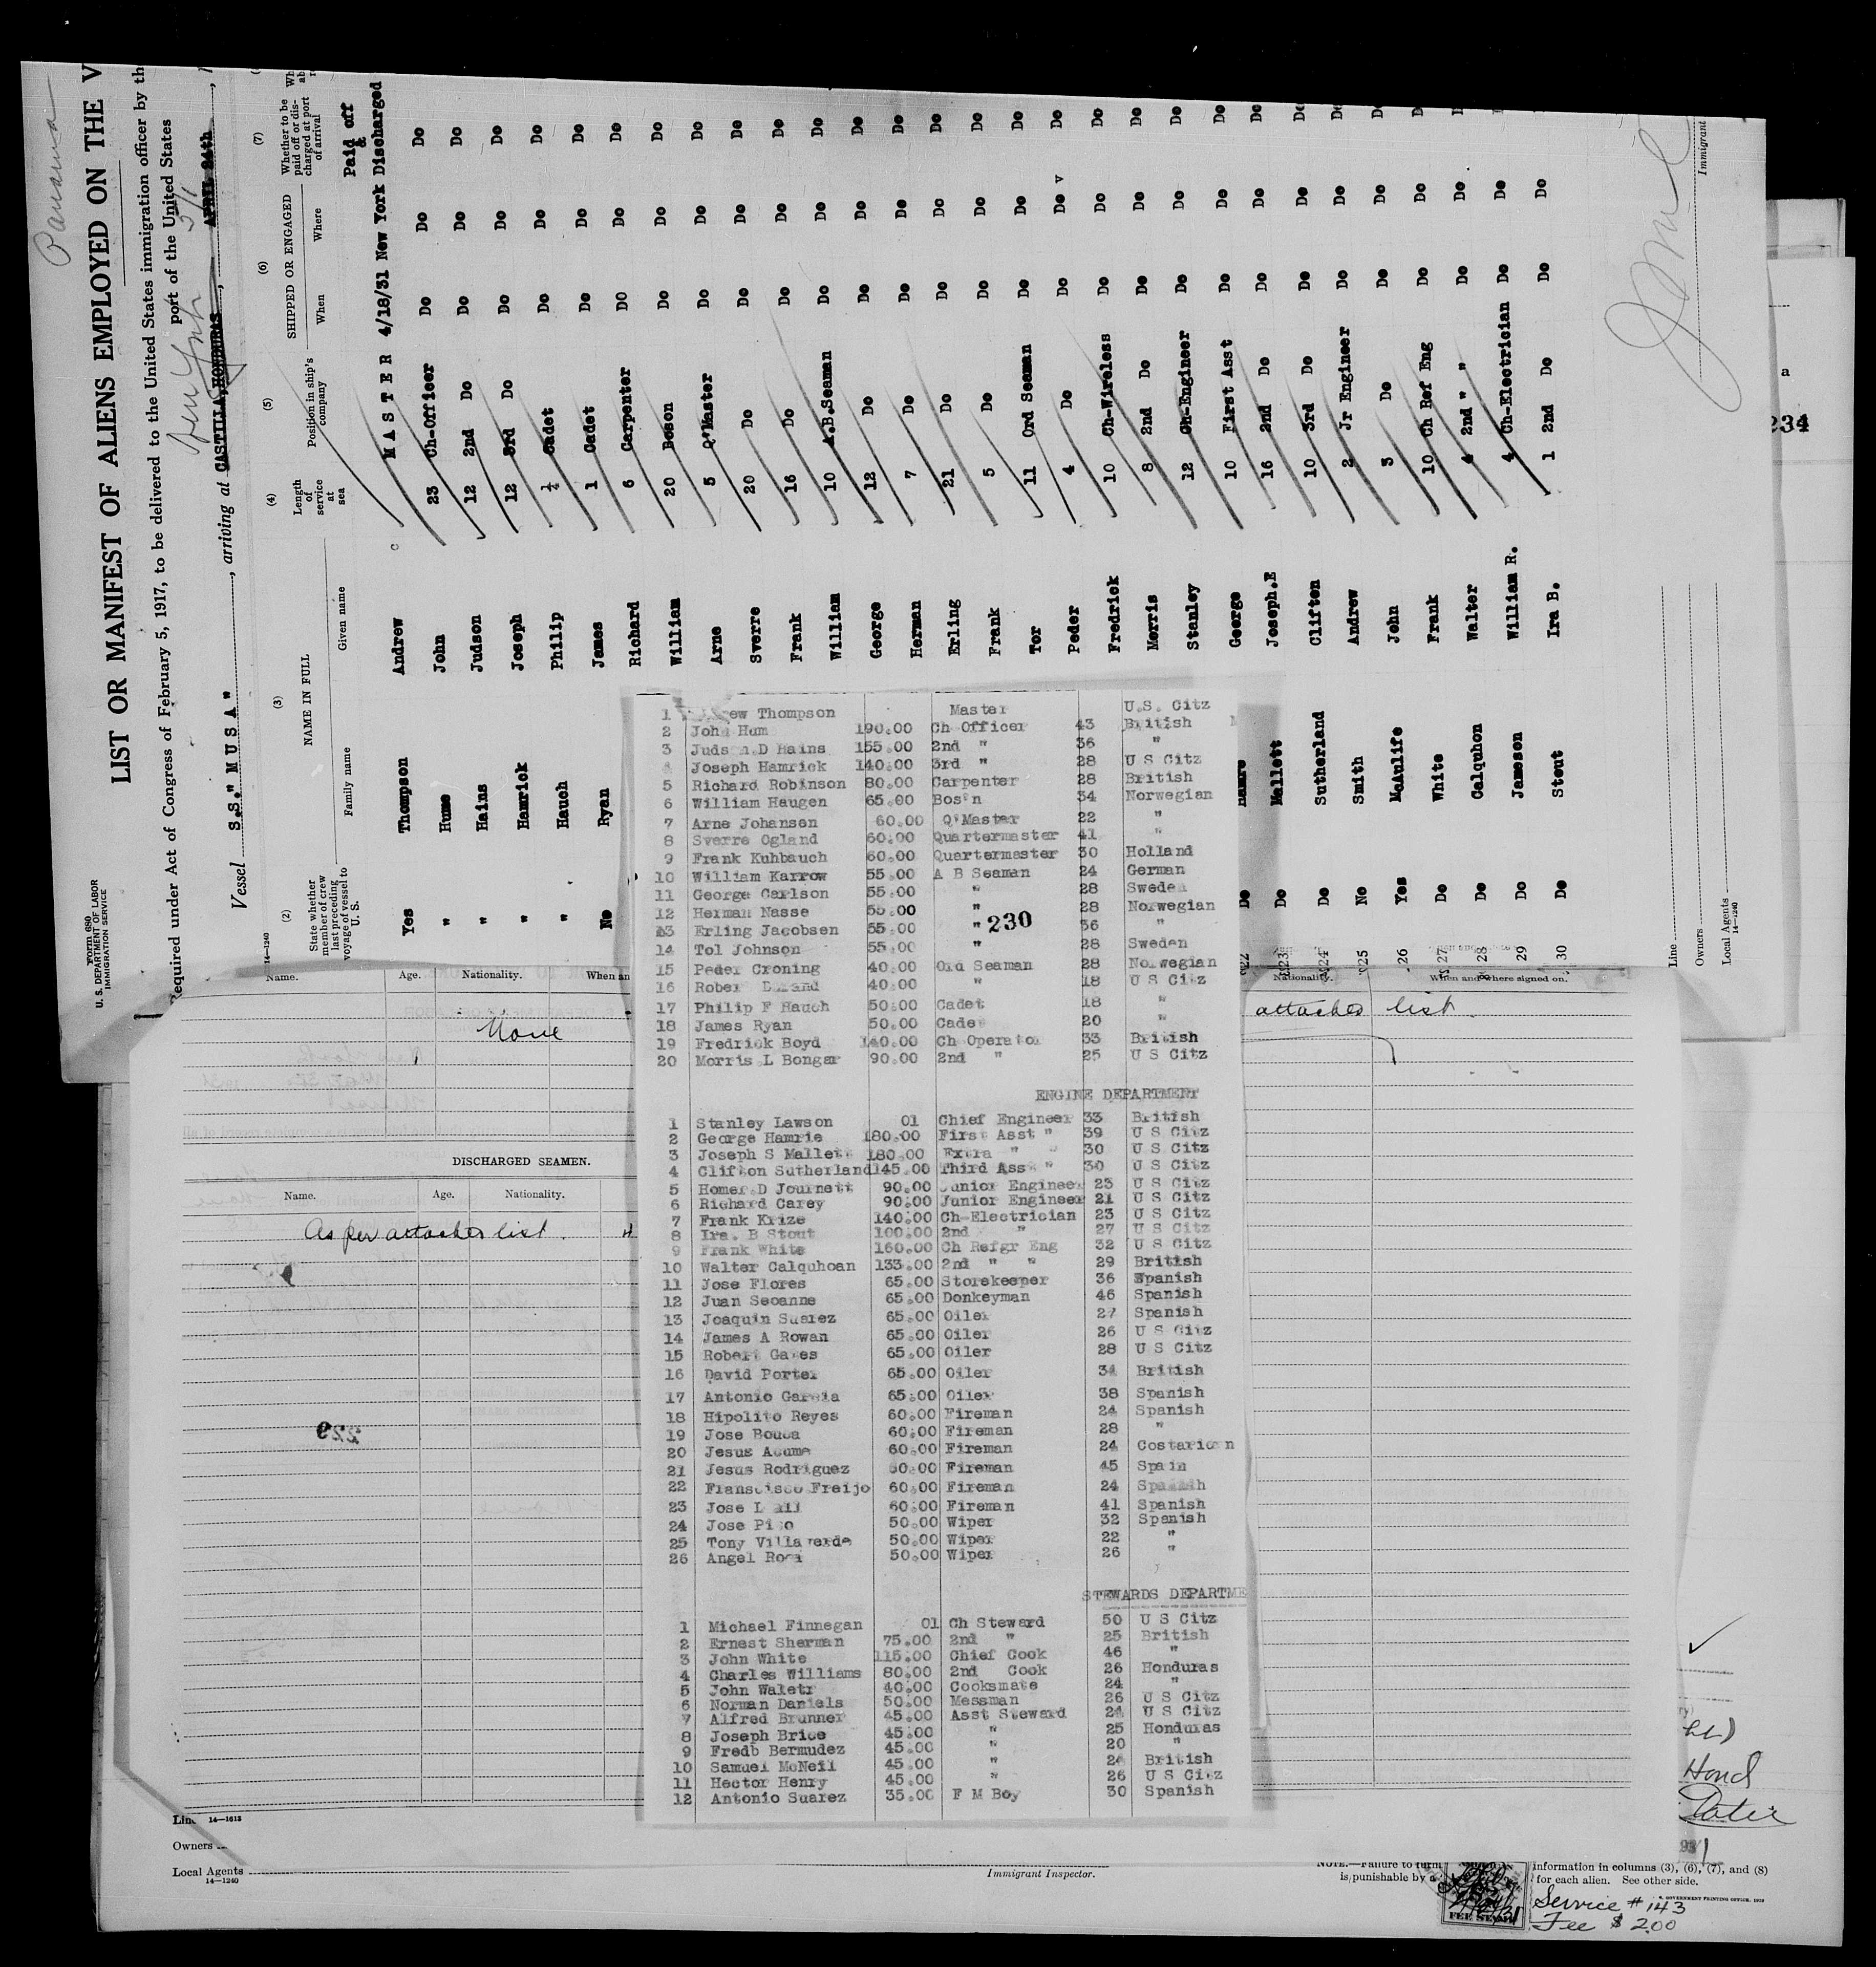 Panama
Form 680
U. S. DEPARTMENT OF LABOR
IMMIGRATION SERVICE
LIST OR MANIFEST OF ALIENS EMPLOYED ON THE V
Required under Act of Congress of February 5, 1917, to be delivered to the United States immigration officer by th
port of the United States
New York 5/1
Vessel S.S." M U S A ", arriving at CASTILLA, HONDURAS, APRIL 24th,
14—1240
(2) (3) (4) (5) (6) (7)
State whether member of crew last preceding voyage of vessel to U. S.
NAME IN FULL
Family name Given name
Length of service at sea
Position in ship's company
SHIPPED OR ENGAGED
When Where
Whether to be paid off or discharged at port of arrival
Paid off &
Yes Thompson Andrew M A S T E R 4/18/31 New York Discharged
" Hume John 23 Ch-Officer Do Do Do
" Hains Judson 12 2nd Do Do Do Do
" Hamrick Joseph 12 3rd Do Do Do Do
" Hauch Philip Cadet Do Do Do
No Ryan James 1 Cadet Do Do Do
Richard 6 Carpenter DO Do Do
William 20 Boson Do Do Do
Arne 5 Q'Master Do Do Do
Sverre 20 Do Do Do Do
Frank 16 Do Do Do Do
William 10 A.B.Seaman Do Do Do
George 12 Do Do Do Do
Herman 7 Do Do Do Do
Erling 21 Do Do Do Do
Frank 5 Do Do Do Do
Tor 11 Ord Seaman Do Do Do
Peder 4 Do Do Do v Do
Fredrick 10 Ch-Wireless Do Do Do
Morris 8 2nd Do Do Do Do
Stanley 12 Ch-Engineer Do Do Do
22 Do George 10 First Asst Do Do Do
23 Do Mallett Joseph.E 16 2nd Do Do Do Do
24 Do Sutherland Cliften 10 3rd Do Do Do Do
25 No Smith Andrew 2 Jr Engineer Do Do
26 Yes McAulife John 3 Do Do Do
27 Do White Frank 10 Ch Ref Eng Do Do
28 Do Calquhon Walter 4 2nd " " Do Do
29 Do Jameson William R. 4 Ch-Electrician Do Do
30 Do Stout Ira B. 1 2nd Do Do Do
Line
Owners
Local Agents
14—1240
Immigrant
1 Thompson Master U.S. Citz
2 John Hum 190.00 Ch Officer 43 British
3 Judson D Hains 155.00 2nd " 36 "
Joseph Hamrick 140.00 3rd " 28 U S Citz
5 Richard Robinson 80.00 Carpenter 28 British
6 William Haugen 65.00 Bos'n 34 Norwegian
7 Arne Johansen 60.00 Q'Master 22 "
8 Sverre Ogland 60.00 Quartermaster 41 "
9 Frank Kuhbauch 60.00 Quartermaster 30 Holland
10 William Karrow 55.00 A B Seaman 24 German
11 George Carlson 55.00 " 28 Sweden
12 Herman Nasse 55.00 " 28 Norwegian
13 Erling Jacobsen 55.00 " 36 "
230
14 Tol Johnson 55.00 " 28 Sweden
15 Peder Croning 40.00 Ord Seaman 28 Norwegian
16 Rober 40.00 " 18 U S Citz
17 Philip F Hauch 50.00 Cadet 18 "
18 James Ryan 50.00 Cadet 20 "
19 Fredrick Boyd 140.00 Ch Operator 33 British
20 Morris L Bongar 90.00 2nd " 25 U S Citz
ENGINE DEPARTMENT
1 Stanley Lawson 01 Chief Engineer 33 British
2 George Hamrie 180.00 First Asst " 39 U S Citz
3 Joseph S Mallett 180.00 Extra " " 30 U S Citz
4 Clifton Sutherland 145.00 Third Asst " 30 U S Citz
5 Homer D Journett 90.00 Junior Engineer 23 U S Citz
6 Richard Carey 90.00 Junior Engineer 21 U S Citz
7 Frank Krize 140.00 Ch-Electrician 23 U S Citz
8 Ira. B Stout 100.00 2nd " 27 U S Citz
9 Frank White 160.00 Ch Refgr Eng 32 U S Citz
10 Walter Calquhoan 133.00 2nd " " 29 British
11 Jose Flores 65.00 Storekeeper 36 Spanish
12 Juan Seoanne 65.00 Donkeyman 46 Spanish
13 Joaquin Suarez 65.00 Oiler 27 Spanish
14 James A Rowan 65.00 Oiler 26 U S Citz
15 Robert Gates 65.00 Oiler 28 U S Citz
16 David Porter 65.00 Oiler 34 British
17 Antonio Garcia 65.00 Oiler 38 Spanish
18 Hipolito Reyes 60.00 Fireman 24 Spanish
19 Jose Bouca 60.00 Fireman 28 "
20 Jesus Acuma 60.00 Fireman 24 Costarican
21 Jesus Rodriguez 60.00 Fireman 45 Spain
22 Fransisco Freijo 60.00 Fireman 24 Spanish
23 Jose 60.00 Fireman 41 Spanish
24 Jose Pico 50.00 Wiper 32 Spanish
25 Tony Villaverde 50.00 Wiper 22 "
26 Angel 50.00 Wiper 26 "
STEWARDS DEPARTME
1 Michael Finnegan 01 Ch Steward 50 U S Citz
2 Ernest Sherman 75.00 2nd " 25 British
3 John White 115.00 Chief Cook 46 "
4 Charles Williams 80.00 2nd Cook 26 Honduras
5 John Waletr 40.00 Cooksmate 24 "
6 Norman Daniels 50.00 Messman 26 U S Citz
7 Alfred Brunner 45.00 Asst Steward 24 U S Citz
8 Joseph Brice 45.00 " 25 Honduras
9 Fredb Bermudez 45.00 " 20 "
10 Samuel McNeil 45.00 " 24 British
11 Hector Henry 45.00 " 26 U S Citz
12 Antonio Suarez 35.00 F M Boy 30 Spanish
Name. Age. Nationality. When an
None
DISCHARGED SEAMEN.
Name. Age. Nationality.
As per attached list.
229
Nationality. When and where signed on.
attached list.
a
234
Line 14—1613
Owners
Local Agents
14—1240
Immigrant Inspector.
NOTE.—Failure to furn information in columns (3), (6), (7), and (8)
is punishable by a for each alien. See other side.
Service # 143
Fee $ 2.00
FEE STAMP
Hond